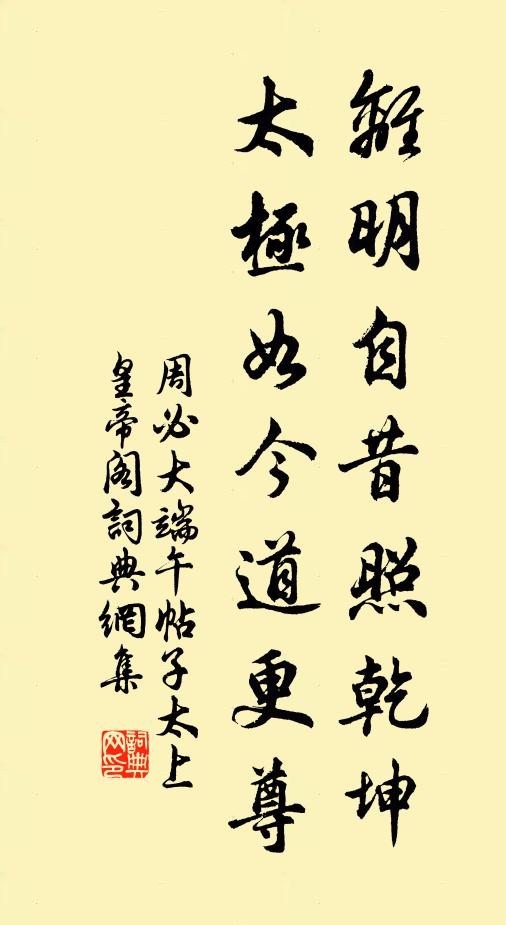 離明自昔照乾坤
太極如今道更尊
周必大端午帖子太上
皇帝閣詞典網集
詞典網印